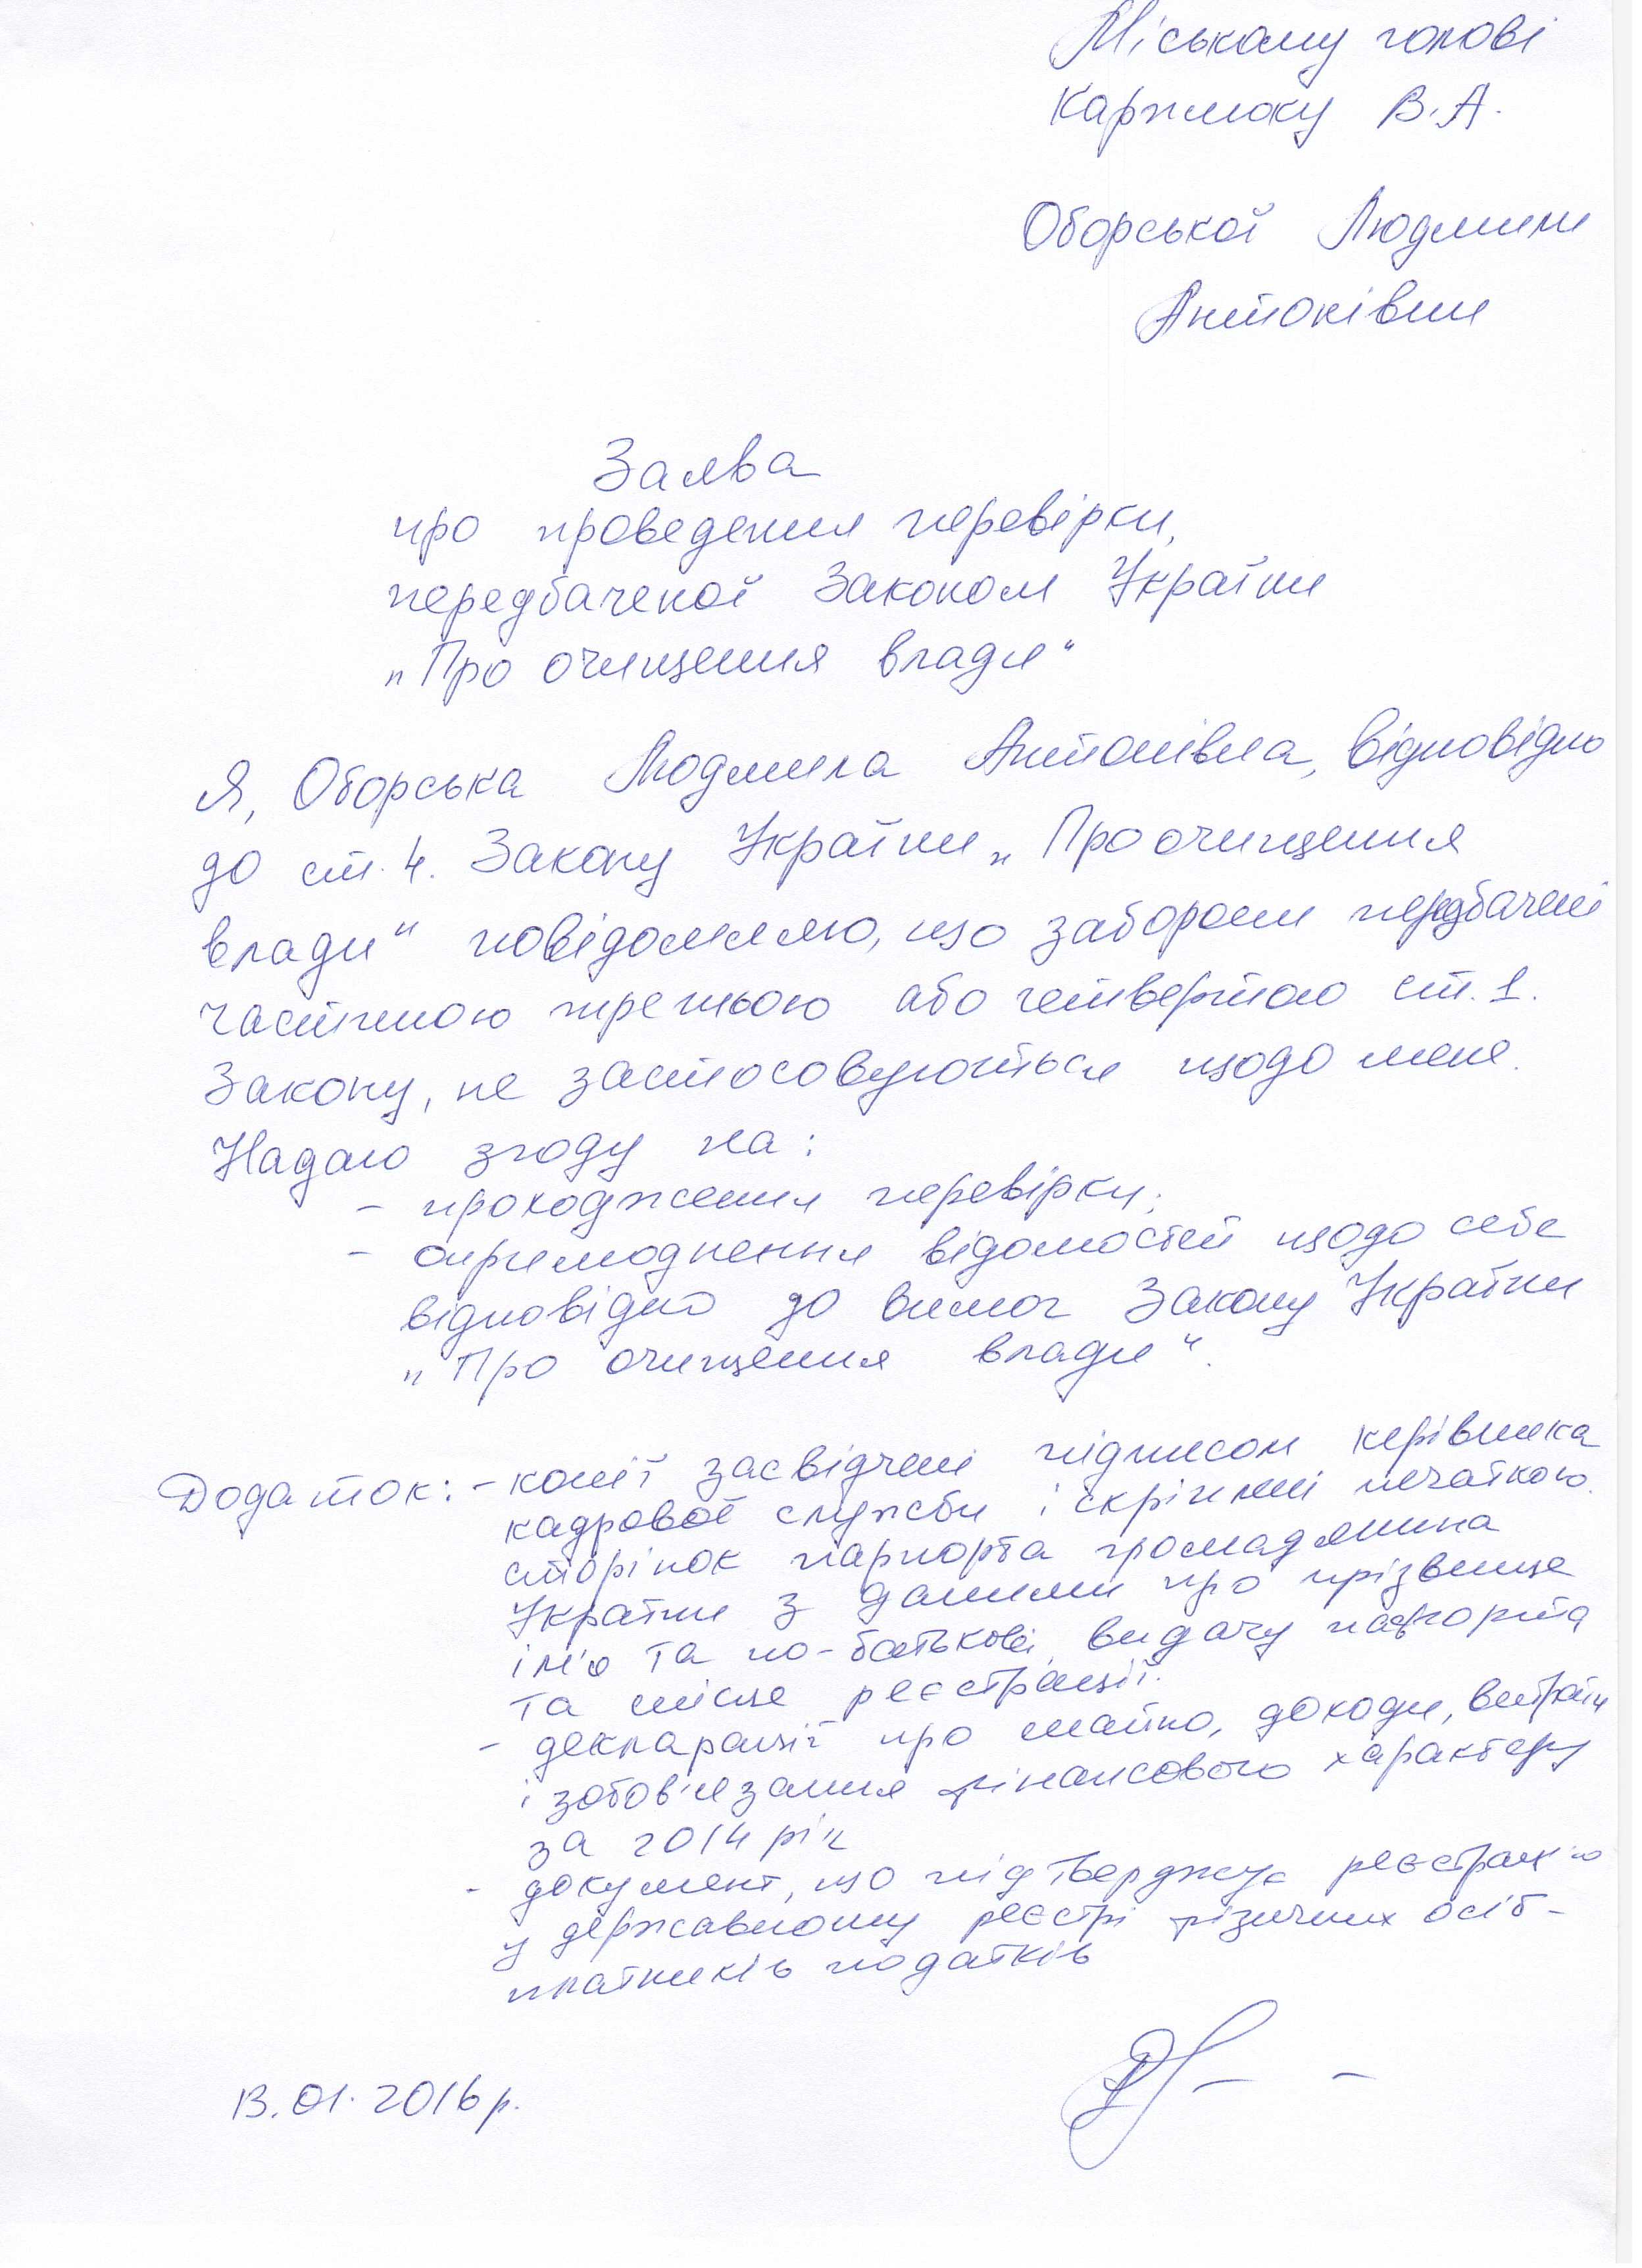 Міському голові
Карплюку В.А.
Оборської Людмили
Антонівни
Заява
про проведення перевірки,
передбаченої Законом України
„Про очищення влади"
Я, Оборська Людмила Антонівна, відповідно
до ст. 4. Закону України „Про очищення
влади" повідомляю, що заборони передбачені
частиною третьою або четвертою ст. 1.
Закону, не застосовуються щодо мене.
Надаю згоду на:
- проходження перевірки;
- оприлюднення відомостей щодо себе
відповідно до вимог Закону України
„Про очищення влади".
Додаток: - копії засвідчені підписом керівника
кадрової служби і скріплені печаткою
сторінок паспорта громадянина
України з даними про прізвище
ім'я та по-батькові, видачу паспорта
та місце реєстрації.
- декларації про майно, доходи, витрати
і зобов'язання фінансового характеру
за 2014 рік
- документ, що підтверджує реєстрацію
у державному реєстрі фізичних осіб -
платників податків
13.01.2016 р.